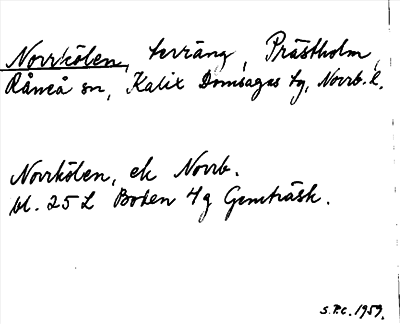 Norrkölen, terräng, Prästholm,
Råneå sn, Kalix Domsagas tg, Norrb. l.
Norrkölen, ek Norrb.
bl. 25 L Boden 4g Gemträsk.
S.P.C. 1959.